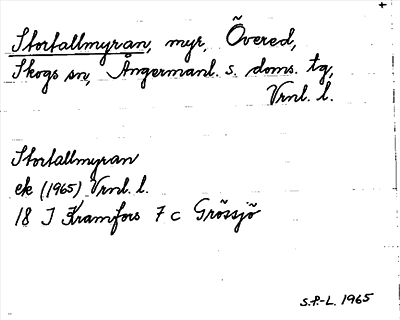 Stortallmyran, myr, Övered,
Skogs sn, Ångermanl. s. doms. tg,
Vrnl. l.
Stortallmyran
ek (1965) Vrnl. l.
18 I Kramfors 7 c Grössjö
S.P.-L. 1965